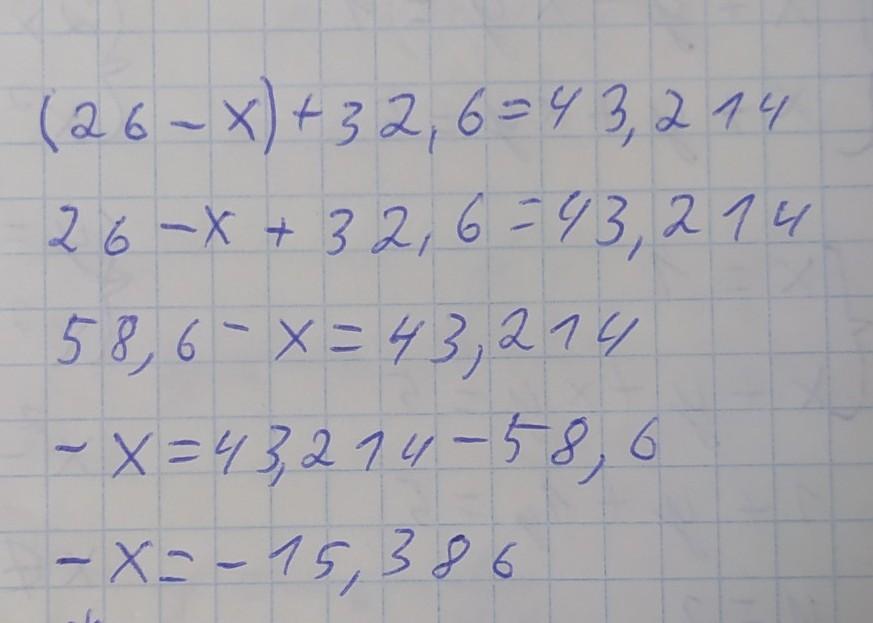 (26-x)+32,6=43,214
26-x+32,6=43,214
58,6-x=43,214
-x=43,214-58,6
-x=-15,386